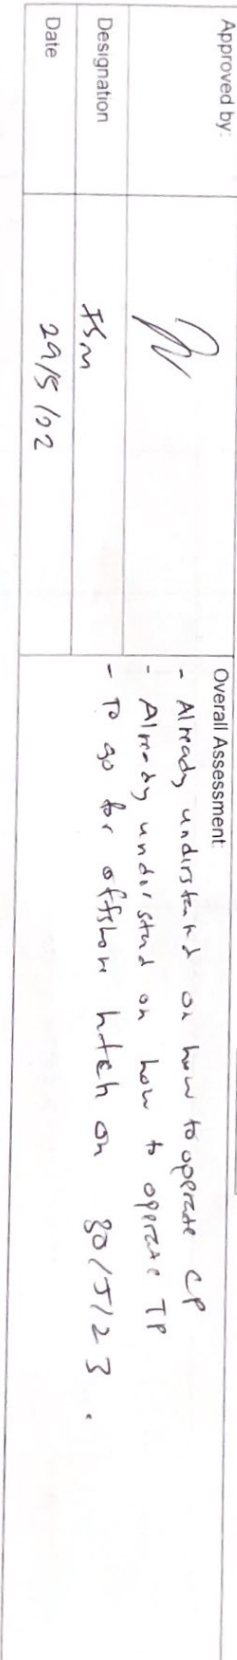 Approved by:
Designation
FSM
Date
29/5/22
Overall Assessment:
- Already understand on how to opperate CP
- Already understand on how to opperate TP
- To go for offshore hitch on 30/5/23.